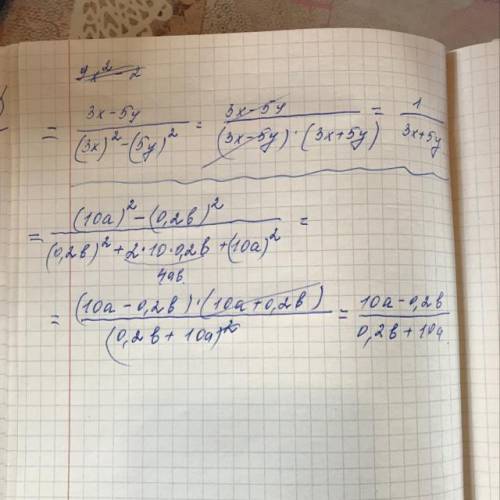 = 3x-5y / (3x)² - (5y)² = 3x-5y / (3x-5y)·(3x+5y) = 1 / 3x+5y
= (10a)² - (0,2b)² / (0,2b)² + 2·10·0,2b + (10a)² =
4ab
= (10a-0,2b)·(10a+0,2b) / (0,2b+10a)² = 10a-0,2b / 0,2b+10a